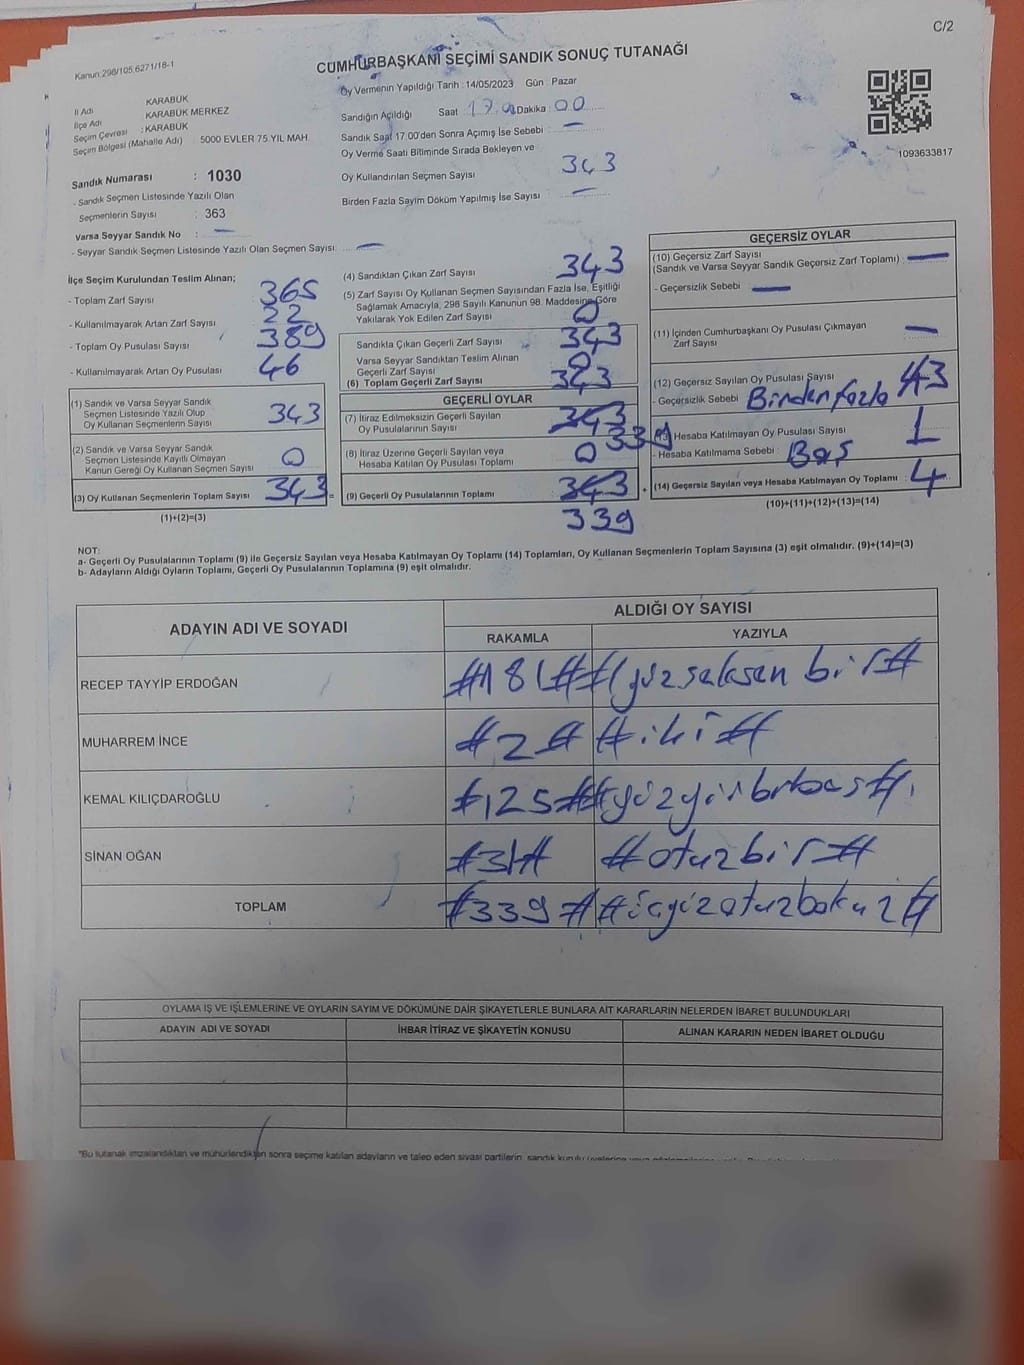 C/2
Kanun:298/105,6271/18-1
CUMHURBAŞKANI SEÇİMİ SANDIK SONUÇ TUTANAĞI
İl Adı : KARABÜK
İlçe Adı : KARABÜK MERKEZ
Seçim Çevresi : KARABÜK
Seçim Bölgesi (Mahalle Adı) : 5000 EVLER 75.YIL MAH.
Oy Vermenin Yapıldığı Tarih :14/05/2023 Gün : Pazar
Sandığın Açıldığı Saat : 17.00 Dakika : 00
Sandık Saat 17.00'den Sonra Açılmış İse Sebebi : —
Oy Verme Saati Bitiminde Sırada Bekleyen ve
Oy Kullandırılan Seçmen Sayısı : 343
Birden Fazla Sayım Döküm Yapılmış İse Sayısı : —
1093633817
Sandık Numarası : 1030
- Sandık Seçmen Listesinde Yazılı Olan
Seçmenlerin Sayısı : 363
Varsa Seyyar Sandık No : —
- Seyyar Sandık Seçmen Listesinde Yazılı Olan Seçmen Sayısı: —
İlçe Seçim Kurulundan Teslim Alınan;
- Toplam Zarf Sayısı 365
- Kullanılmayarak Artan Zarf Sayısı 22
- Toplam Oy Pusulası Sayısı 389
- Kullanılmayarak Artan Oy Pusulası 46
(1) Sandık ve Varsa Seyyar Sandık
Seçmen Listesinde Yazılı Olup
Oy Kullanan Seçmenlerin Sayısı 343
(2) Sandık ve Varsa Seyyar Sandık
Seçmen Listesinde Kayıtlı Olmayan
Kanun Gereği Oy Kullanan Seçmen Sayısı 0
(3) Oy Kullanan Seçmenlerin Toplam Sayısı 343 =
(1)+(2)=(3)
(4) Sandıktan Çıkan Zarf Sayısı 343
(5) Zarf Sayısı Oy Kullanan Seçmen Sayısından Fazla İse, Eşitliği
Sağlamak Amacıyla, 298 Sayılı Kanunun 98. Maddesine Göre
Yakılarak Yok Edilen Zarf Sayısı 0
Sandıkta Çıkan Geçerli Zarf Sayısı 343
Varsa Seyyar Sandıktan Teslim Alınan
Geçerli Zarf Sayısı 0
(6) Toplam Geçerli Zarf Sayısı 343
GEÇERLİ OYLAR
(7) İtiraz Edilmeksizin Geçerli Sayılan
Oy Pusulalarının Sayısı 343 339
(8) İtiraz Üzerine Geçerli Sayılan veya
Hesaba Katılan Oy Pusulası Toplamı 0
(9) Geçerli Oy Pusulalarının Toplamı 343 +
339
GEÇERSİZ OYLAR
(10) Geçersiz Zarf Sayısı
(Sandık ve Varsa Seyyar Sandık Geçersiz Zarf Toplamı) : —
- Geçersizlik Sebebi : —
(11) İçinden Cumhurbaşkanı Oy Pusulası Çıkmayan
Zarf Sayısı —
(12) Geçersiz Sayılan Oy Pusulası Sayısı 3
- Geçersizlik Sebebi : Birden fazla
(13) Hesaba Katılmayan Oy Pusulası Sayısı 1
- Hesaba Katılmama Sebebi : Boş
(14) Geçersiz Sayılan veya Hesaba Katılmayan Oy Toplamı : 4
(10)+(11)+(12)+(13)=(14)
NOT:
a- Geçerli Oy Pusulalarının Toplamı (9) ile Geçersiz Sayılan veya Hesaba Katılmayan Oy Toplamı (14) Toplamları, Oy Kullanan Seçmenlerin Toplam Sayısına (3) eşit olmalıdır. (9)+(14)=(3)
b- Adayların Aldığı Oyların Toplamı, Geçerli Oy Pusulalarının Toplamına (9) eşit olmalıdır.
ADAYIN ADI VE SOYADI ALDIĞI OY SAYISI
RAKAMLA YAZIYLA
RECEP TAYYİP ERDOĞAN #181# #yüzseksen bir#
MUHARREM İNCE #2# #iki#
KEMAL KILIÇDAROĞLU #125# #yüzyirmibeş#
SİNAN OĞAN #31# #otuzbir#
TOPLAM #339# #üçyüzotuzdokuz#
OYLAMA İŞ VE İŞLEMLERİNE VE OYLARIN SAYIM VE DÖKÜMÜNE DAİR ŞİKAYETLERLE BUNLARA AİT KARARLARIN NELERDEN İBARET BULUNDUKLARI
ADAYIN ADI VE SOYADI İHBAR İTİRAZ VE ŞİKAYETİN KONUSU ALINAN KARARIN NEDEN İBARET OLDUĞU
"Bu tutanak imzalandıktan ve mühürlendikten sonra seçime katılan adayların ve talep eden siyasi partilerin, sandık kurulu